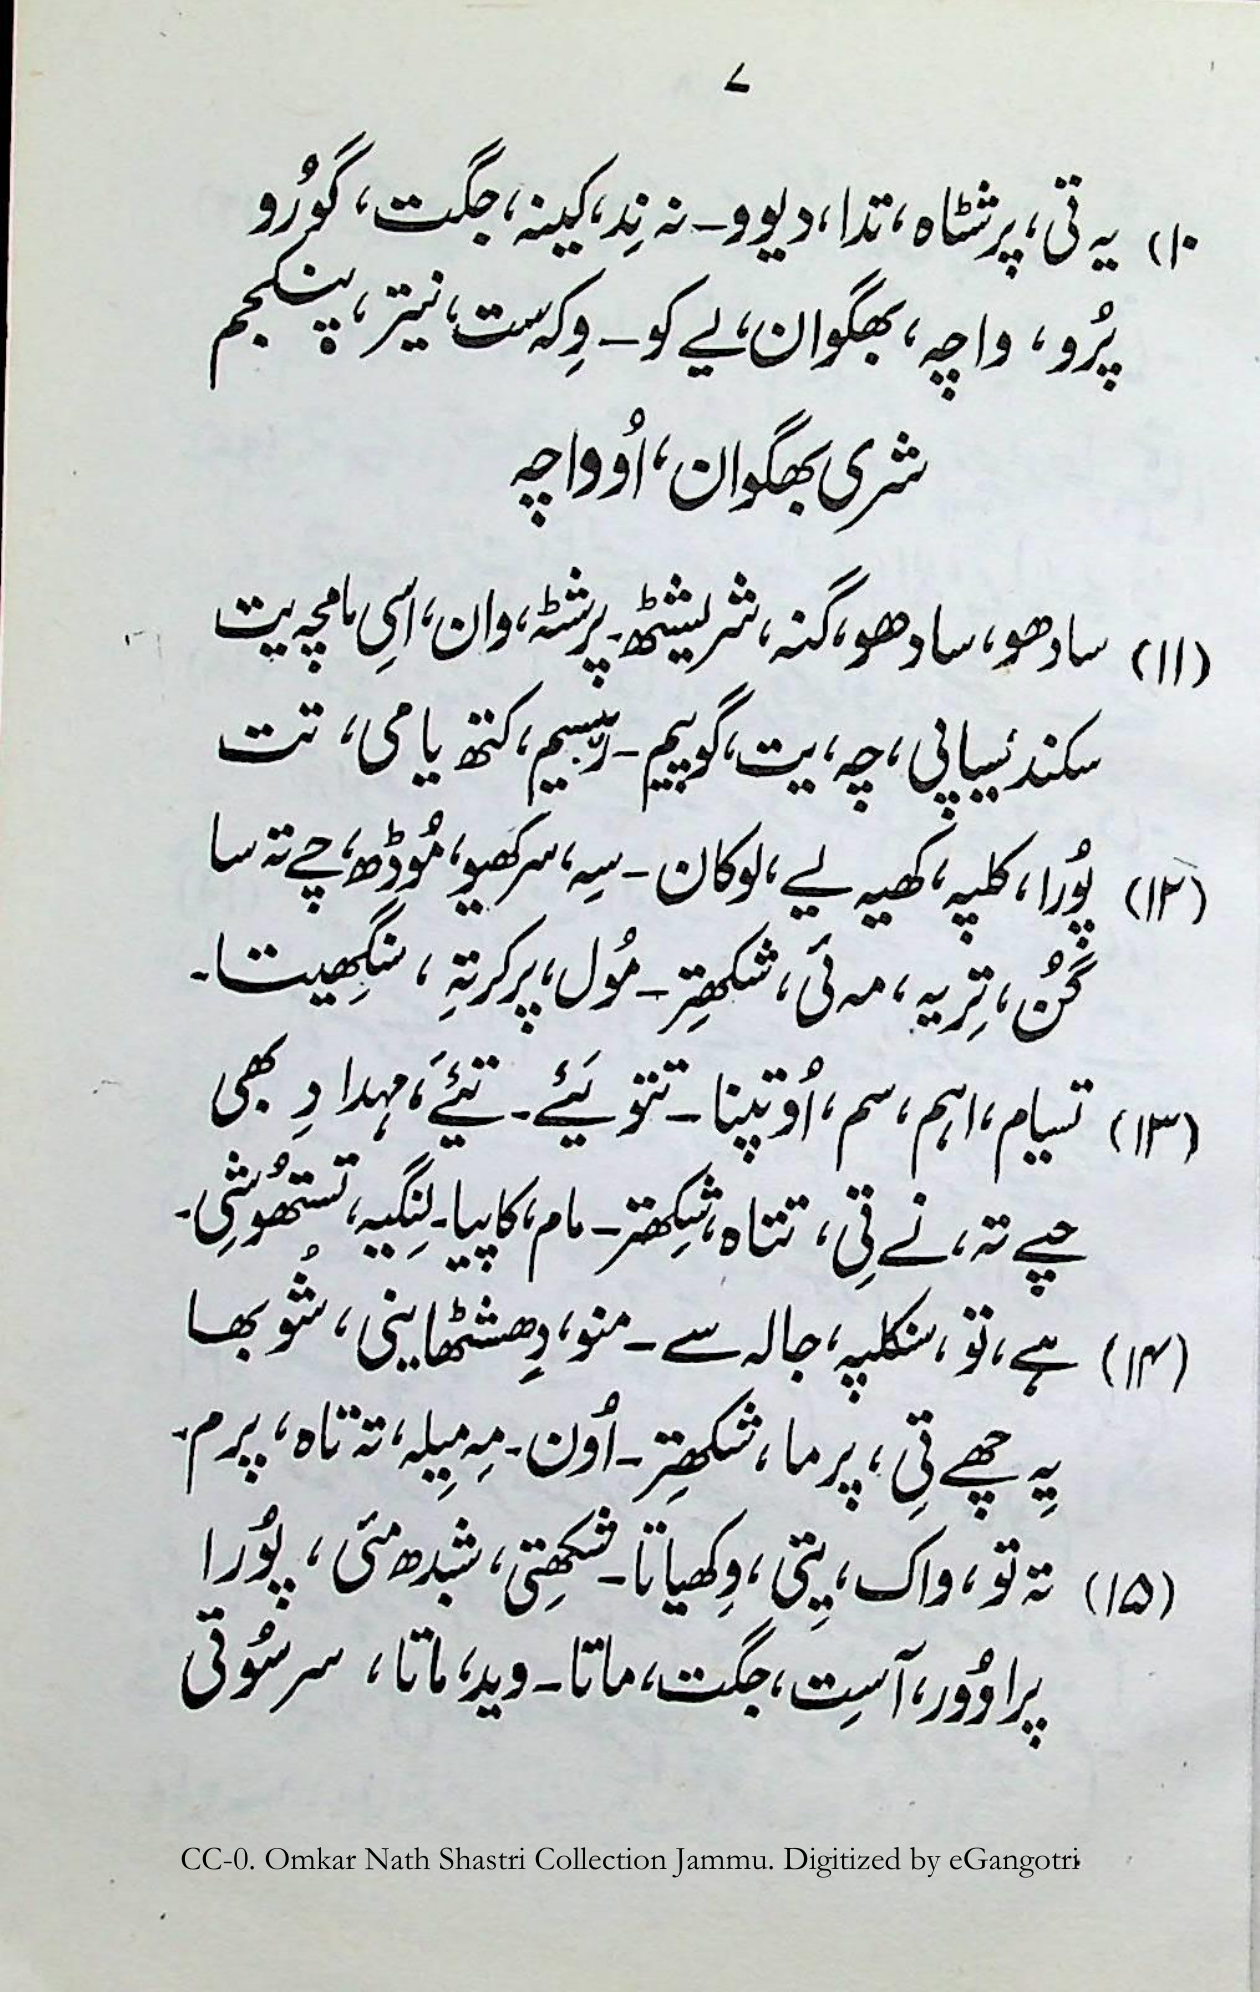 ۷
۱۰) یہ تی، پرشٹاہ، تدا، دیوو۔ نہ نِد، کینہ، جگت، گوُرو
پرُو، واچہ، بھگوان، لیے کو۔ وِکہ ست، نیتر، پنکجم
شری بھگوان، اُوواچہ
(۱۱) سادھو، سادھو، گنہ، شریشٹھ۔ پرشٹہ، وان، اسی مامچہ یت
سکند پیاپی، چہ، یت، گوپیم۔ کتھ یامی، تت
(۱۲) پُورا، کلپہ، کھیہ لیے، لوکان۔ سِہ، سرکھیو، مُوڈھ، چے تہ سا
گُن، تِریہ، مہ ئی، شکھتِر۔ مُول، پرکرتہِ، سنگھِیتا۔
(۱۳) تسیام، اہم، سم، اُوتپنا۔ تتو یَئے۔ تیئے، مہدا دِ بھی
چے تہ، نے تِی، تتاہ، شکھِتر۔ مام، کاپیا۔ لنگیہ، تستھُوشِی۔
(۱۴) ہے، تو، سنکلپہ، جالہ سے۔ منو، دِھشٹھاینی، شُوبھا
یہِ چھے تِی، پرما، شکھتِر۔ اُون۔ مہِ مِیلہ، تہ تاہ، پرم۔
(۱۵) تہ تو، واک، یِتی، وِکھیاتا۔ شکھِتی، شبدھ مئی، پُورا
پراوُور، آست، جگت، ماتا۔ وید، ماتا، سرسُوتی
CC-0. Omkar Nath Shastri Collection Jammu. Digitized by eGangotri